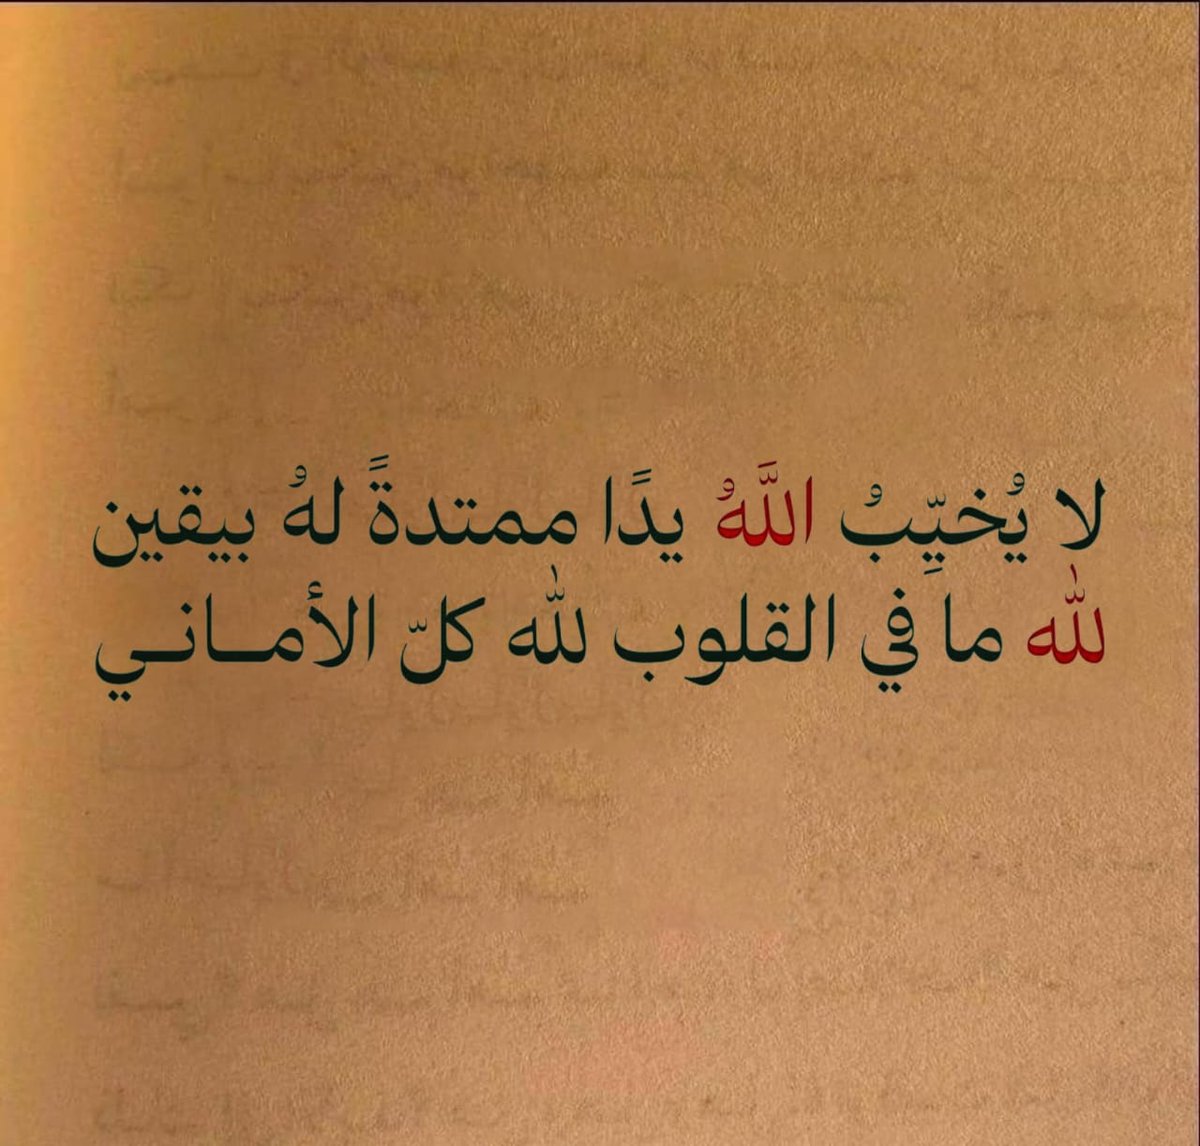 لا يُخيِّبُ اللَّهُ يدًا ممتدةً لهُ بيقين
لله ما في القلوب لله كلّ الأمـــانـي